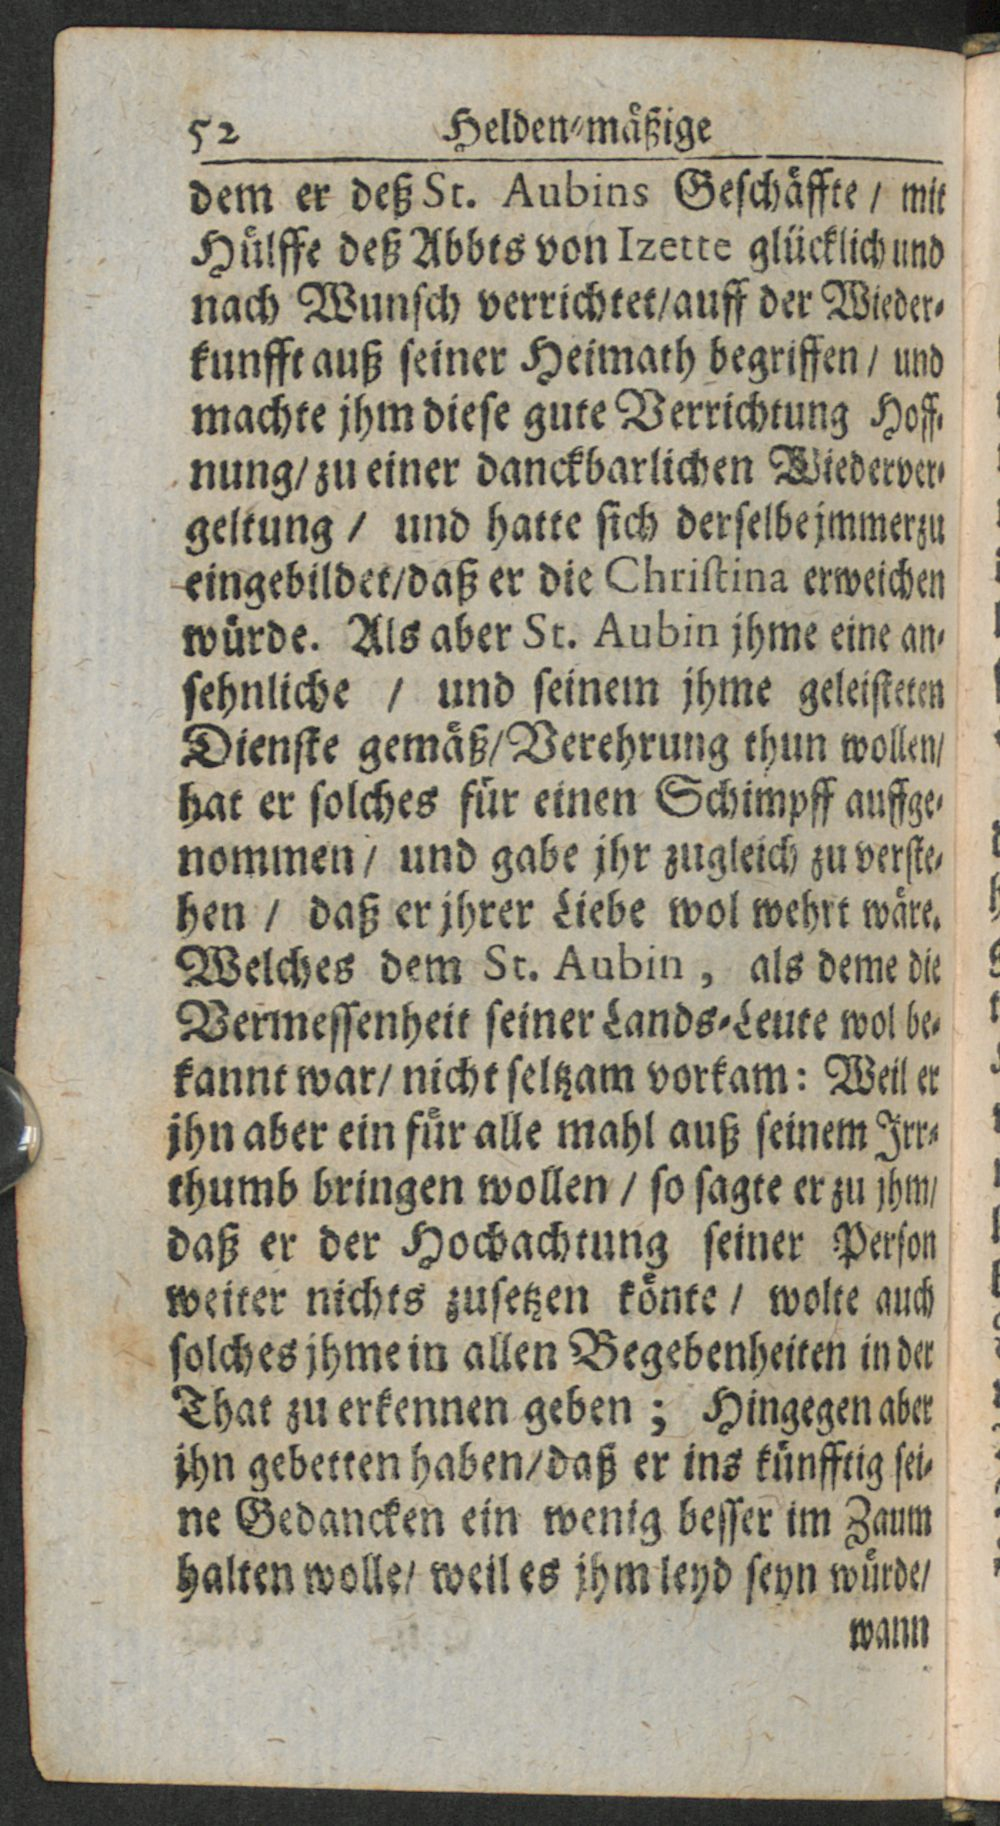 52 Helden-mäßige
dem er deß St. Aubins Geschäffte / mit
Hülffe deß Abbts von Izette glücklich und
nach Wunsch verrichtet/auff der Wieder-
kunfft auß seiner Heimath begriffen / und
machte jhm diese gute Verrichtung Hoff-
nung/ zu einer danckbarlichen Wiederver-
geltung / und hatte sich derselbe jmmerzu
eingebildet/daß er die Christina erweichen
würde. Als aber St. Aubin jhme eine an-
sehnliche / und seinem jhme geleisteten
Dienste gemäß/Verehrung thun wollen/
hat er solches für einen Schimpff auffge-
nommen / und gabe jhr zugleich zu verste-
hen / daß er jhrer Liebe wol wehrt wäre.
Welches dem St. Aubin, als deme die
Vermessenheit seiner Lands-Leute wol be-
kannt war/ nicht seltzam vorkam: Weil er
jhn aber ein für alle mahl auß seinem Irr-
thumb bringen wollen / so sagte er zu jhm/
daß er der Hochachtung seiner Person
weiter nichts zusetzen könte / wolte auch
solches jhme in allen Begebenheiten in der
That zu erkennen geben ; Hingegen aber
jhn gebetten haben/daß er ins künfftig sei-
ne Gedancken ein wenig besser im Zaum
halten wolle/ weil es jhm leyd seyn würde/
wann